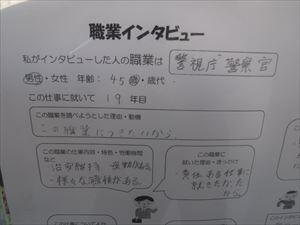 職業インタビュー
私がインタビューした人の職業は 警視庁 警察官
男性・女性 年齢： 45 歳・歳代
この仕事に就いて 19 年目
この職業を調べようとした理由・動機
この職業につきたいから
この職業の仕事内容・特色・労働時間
など
・治安維持
・様々な職種がある。
この職業に
就いた理由・きっかけ
・責任ある仕事に
就きたかった
から。